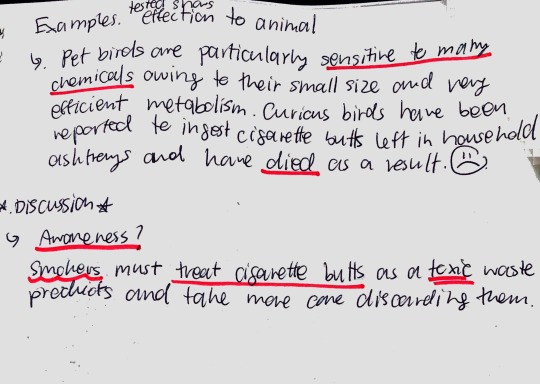 tested shows
Examples. effection to animal
↳. Pet birds are particularly sensitive to many
chemicals owing to their small size and very
efficient metabolism. Curious birds have been
reported to ingest cigarette butts left in household
ashtrays and have died as a result. ☹
*. DISCUSSION *
↳ Awareness?
Smokers must treat cigarette butts as a toxic waste
products and take more care discarding them.